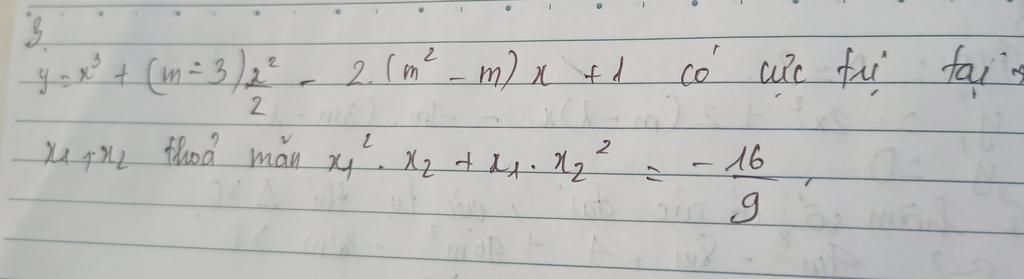 3.
y = x³ + (m - 3) x²/2 - 2.(m² - m) x + 1 có cực trị tại
x₁, x₂ thoả mãn x₁² . x₂ + x₁ . x₂² = -16/9